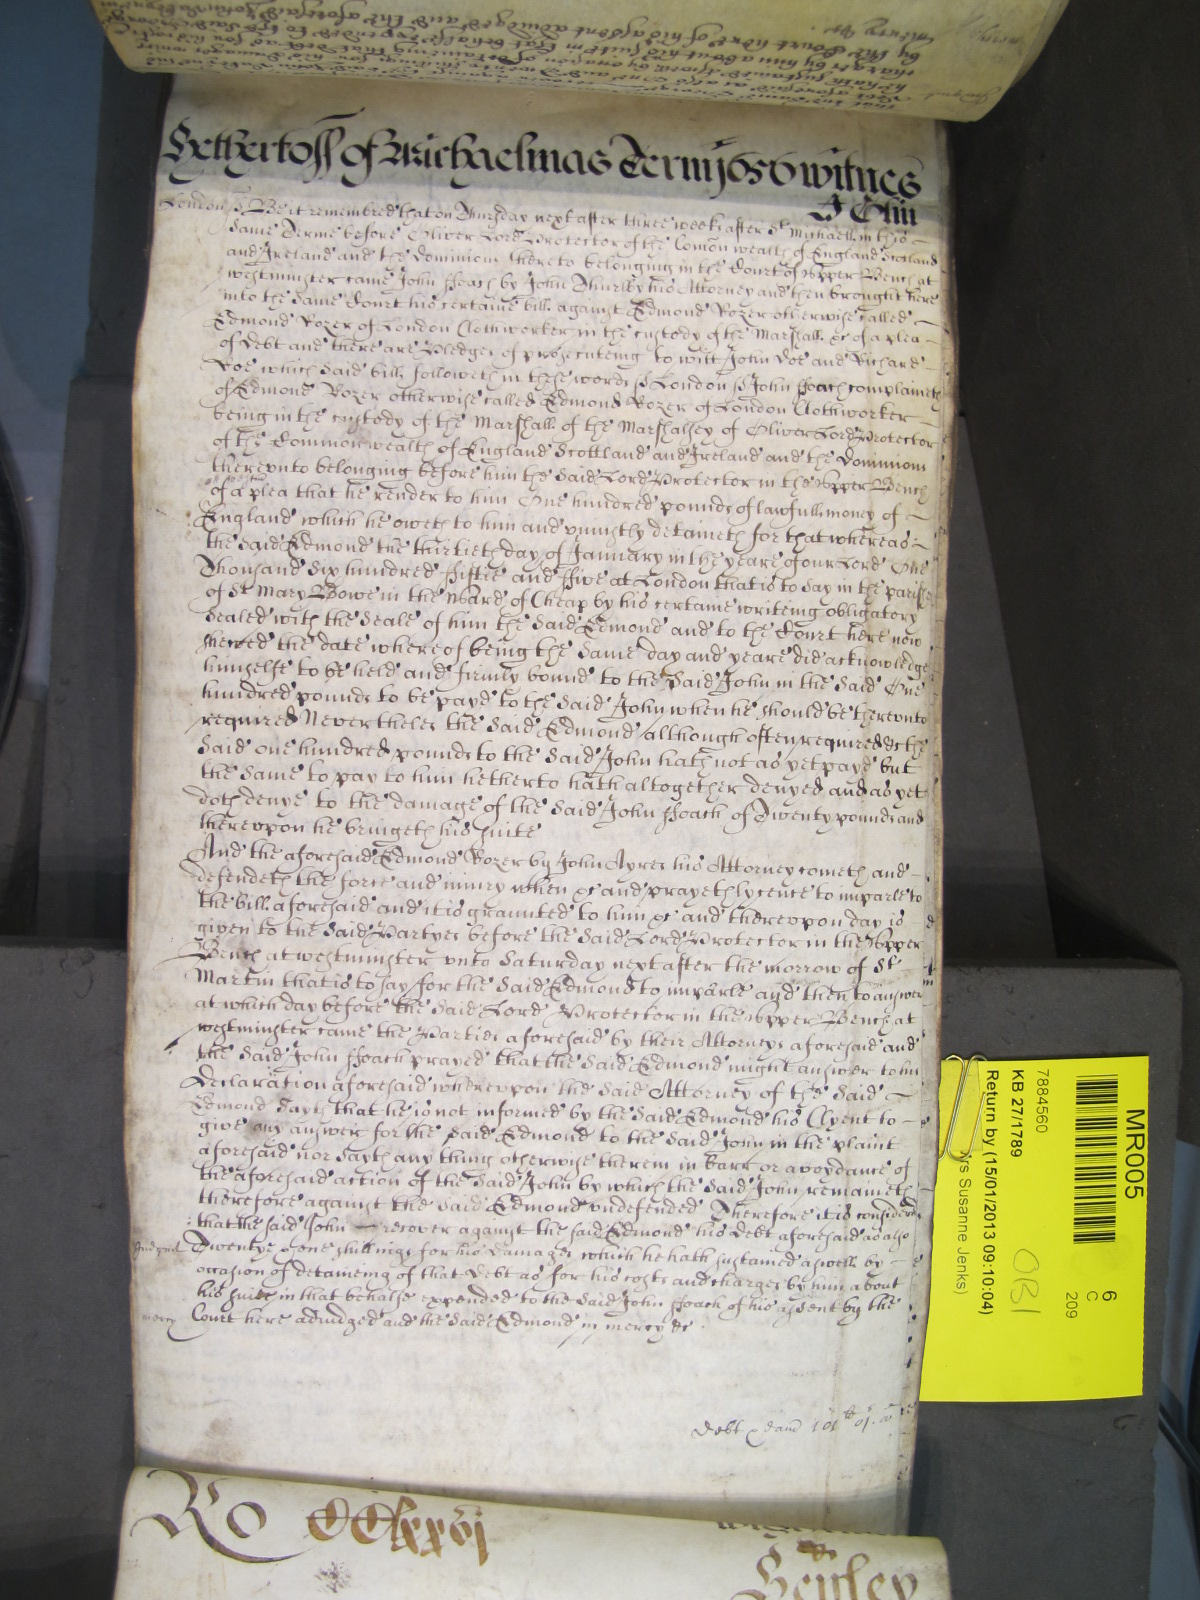 Hetherto ss of Michaelmas Terme 1656 witnes
London ss Be it remembred that on Thursday next after three weekes after St Michaell in this
same Terme before Oliver Lord Protector of the Comon wealth of England Scotland
and Ireland and the Dominions thereto belonging in the Court of Upper Bench at
westminster came John ffoach by John Thurlby his Attorney and then brought here
into the same Court his certaine bill against Edmond Rozer otherwise called
Edmond Rozer of London Clothworker in the custody of the Marshall &c of a plea
of debt and there are Pledges of prosecuteing to witt John Doe and Richard
Roe which said bill followeth in these words ss London ss John ffoach complaineth
of Edmond Rozer otherwise called Edmond Rozer of London Clothworker
being in the custody of the Marshall of the Marshalsey of Oliver Lord Protector
of the Common wealth of England Scottland and Ireland and the Dominions
thereunto belonging before him the said Lord Protector in the Upper Bench
of a plea that he render to him One hundred pounds of lawfull money of
England which he oweth to him and uniustly detaineth for that whereas
the said Edmond the thirtieth day of January in the yeare of our Lord One
Thousand Six hundred ffiftie and ffive at London that is to say in the parishe
of St Mary Bowe in the Ward of Cheap by his certaine writeing obligatory
sealed with the seale of him the said Edmond and to the Court here now
shewed the date whereof being the same day and yeare did acknowledge
himselfe to be held and firmly bound to the said John in the said One
hundred pounds to be payd to the said John when he should be thereunto
required Neverthelesse the said Edmond although often required &c the
said one hundred pounds to the said John hath not as yet payd but
the same to pay to him hetherto hath altogether denyed and as yet
doth denye to the damage of the said John ffoach of Twenty pounds and
thereupon he bringeth his suite
And the aforesaid Edmond Rozer by John Ayres his Attorney cometh and
defendeth the force and iniury when &c and prayeth lycence to imparle to
the bill aforesaid and it is graunted to him &c and thereupon day is
given to the said Partyes before the said Lord Protector in the Upper
Bench at westminster unto Saturday next after the morrow of St
Martin that is to say for the said Edmond to imparle and then to answer
at which day before the said Lord Protector in the Upper Bench at
westminster came the Parties aforesaid by their Attorneys aforesaid and
the said John ffoach prayed that the said Edmond might answer to his
declaration aforesaid whereupon the said Attorney of the said
Edmond sayth that he is not informed by the said Edmond his Clyent to
give any answer for the said Edmond to the said John in the plaint
aforesaid nor sayth any thing otherwise therein in barr or avoydance of
the aforesaid action of the said John by which the said John remaineth
therefore against the said Edmond undefended Therefore it is considered
that the said John recover against the said Edmond his debt aforesaid as also
Twentye & one shillings for his damages which he hath sustained aswell by
occasion of detaineing of that debt as for his costs and charges by him about
his suite in that behalfe expended to the said John ffoach of his assent by the
mercy Court here adiudged and the said Edmond in mercy &c
debt & dam 101
Ro CClxxvj
Henley
MR005
6
C
209
7884560
KB 27/1789
Return by (15/01/2013 09:10:04)
rs Susanne Jenks)